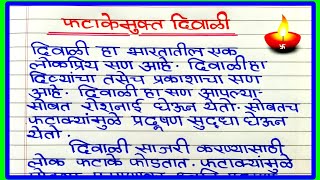 फटाकेमुक्त दिवाळी
दिवाळी हा भारतातील एक
लोकप्रिय सण आहे. दिवाळी हा
दिव्यांचा तसेच प्रकाशाचा सण
आहे. दिवाळी हा सण आपल्या-
सोबत रोशनाई घेऊन येतो. सोबतच
फटाक्यांमुळे प्रदूषण सुद्धा घेऊन
येतो.
दिवाळी साजरी करण्यासाठी
लोक फटाके फोडतात. फटाक्यांमुळे